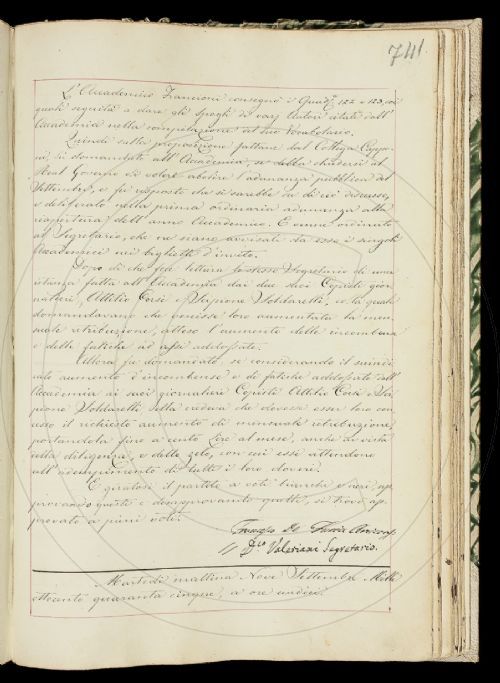 741.
L'Accademico Franceioni consegnò i Quad.ⁱ 122 e 123, coi
quali seguita a dare gli spogli di varj Autori citati dall'
Accademia nella compilazione del suo Vocabolario.
Quindi sulla proposizione fattane dal Collega Cappo-
ni, si domandato all'Accademia, se debba chiedersi al
Real Governo di volere abolire l'adunanza pubblica del
Settembre, e fu risposto che si sarebbe su di ciò discusso,
e deliberato nella prima ordinaria adunanza alla
riapertura dell'anno Accademico. E venne ordinato
al Segretario, che ne siano avvisati da esso i singoli
Accademici nei biglietti d'invito.
Dopo di che fece lettura lo stesso Segretario di una
istanza fatta all'Accademia dai due suoi Copisti gior-
nalieri, Attilio Corsi e Scipione Soldaretti, colla quale
domandavano che venisse loro aumentata la men-
suale retribuzione, atteso l'aumento delle incombenze
e delle fatiche ad essi addossate.
Allora fu domandato, se considerando il suindi-
cato aumento d'incombenze e di fatiche addossate dall'
Accademia ai suoi giornalieri Copisti Attilio Corsi e Sci-
pione Soldaretti, ella credeva che dovesse esser loro con-
cesso il richiesto aumento di mensuale retribuzione,
portandola fino a cento Lire al mese, anche in vista
della diligenza, e dello zelo, con cui essi attendono
all'adempimento di tutti i loro doveri.
E giratosi il partito a voti bianchi e neri, ap-
provando questi e disapprovando quelli, si trovò ap-
provato a pieni voti.
Francesco Del Furia Arciconsolo
D.co Valeriani Segretario.
Martedì mattina Nove Settembre Mille
ottocento quaranta cinque, a ore undici.